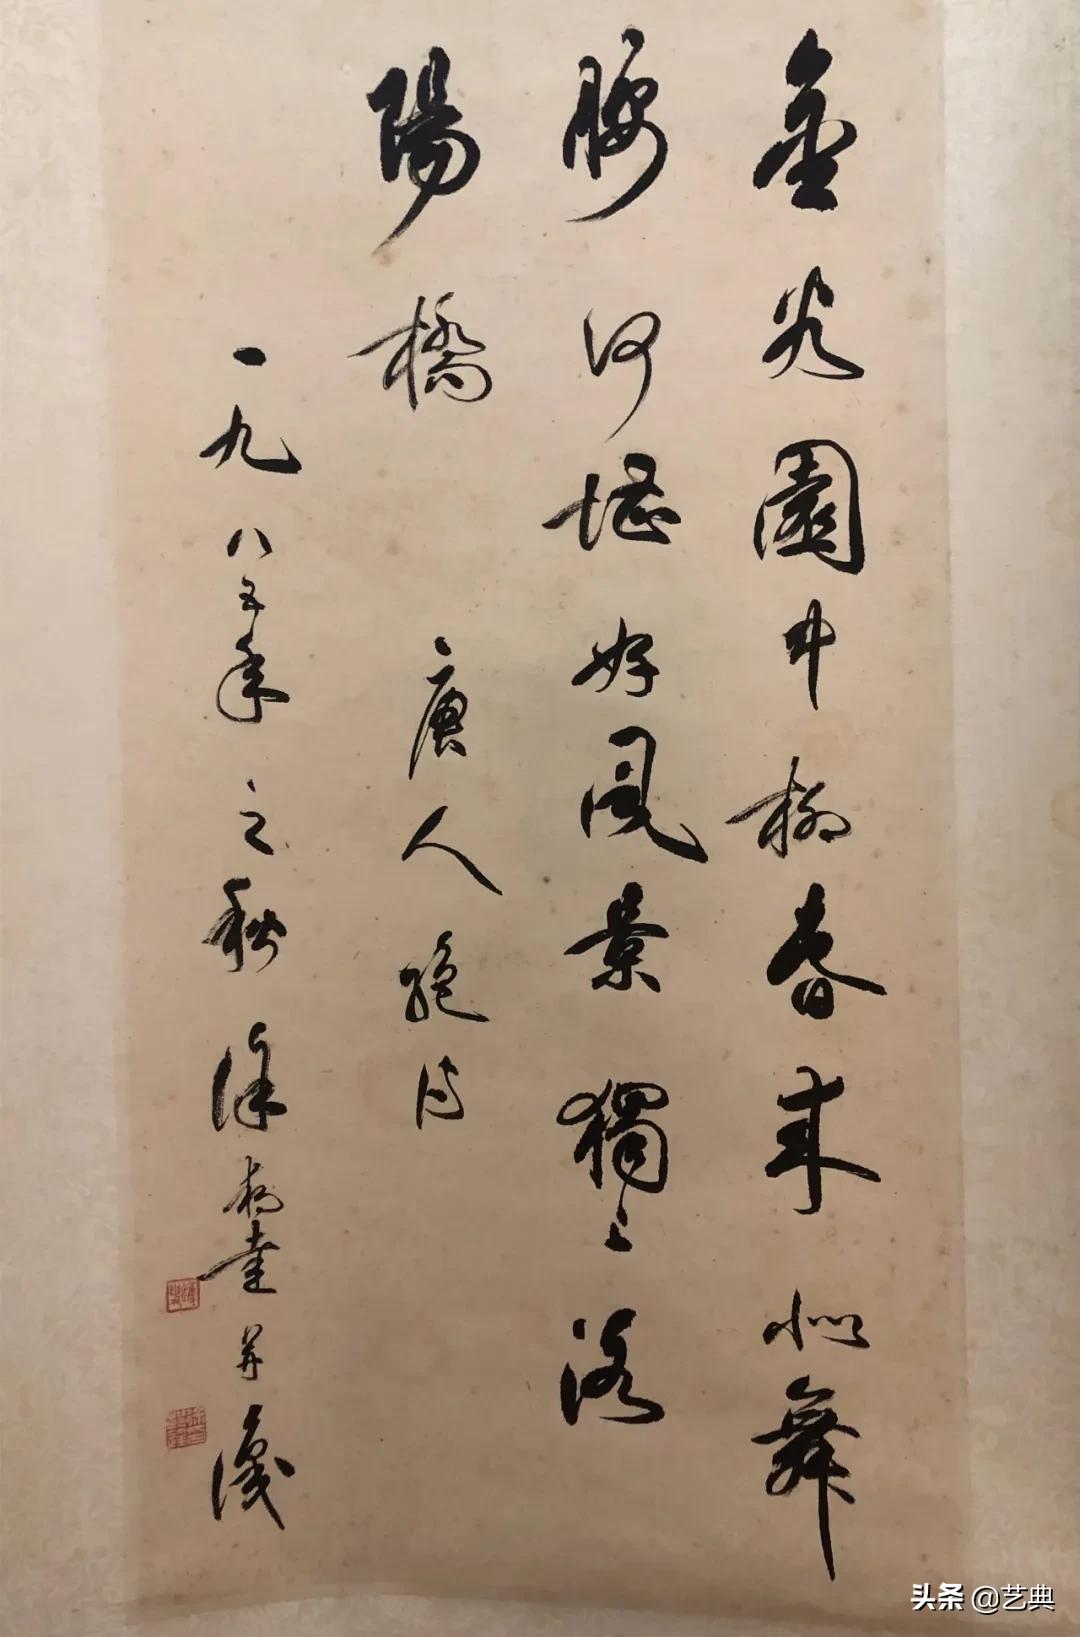 金谷園中柳春来似舞
腰何堪好風景獨上洛
陽橋 唐人絕詩
一九八五年之秋徐 并識
头条 @艺典